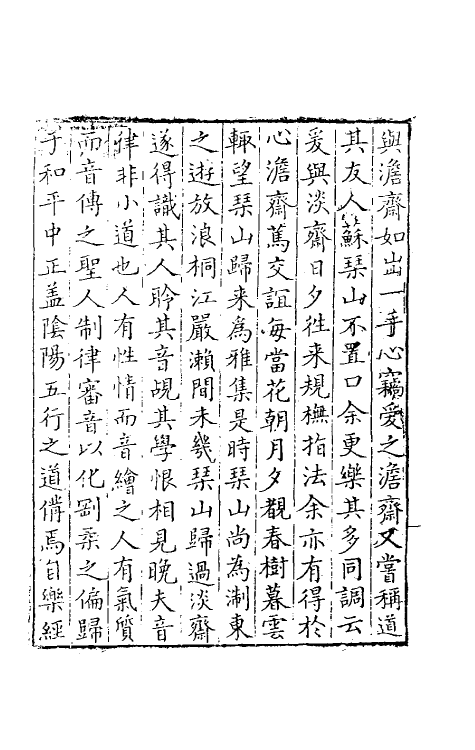 與澹齋如出一手心竊愛之澹齋又嘗稱道
其友人蘇琹山不置口余更樂其多同調云
爰與淡齋日夕徃来規橅指法余亦有得於
心澹齋篤交誼每當花朝月夕覩春樹暮雲
輙望琹山歸来為雅集是時琹山尚為淛東
之遊放浪桐江嚴瀨間未幾琹山歸過淡齋
遂得識其人聆其音覘其學恨相見晚夫音
律非小道也人有性情而音繪之人有氣質
而音傳之聖人制律審音以化剛柔之偏歸
于和平中正盖陰陽五行之道備焉自樂經